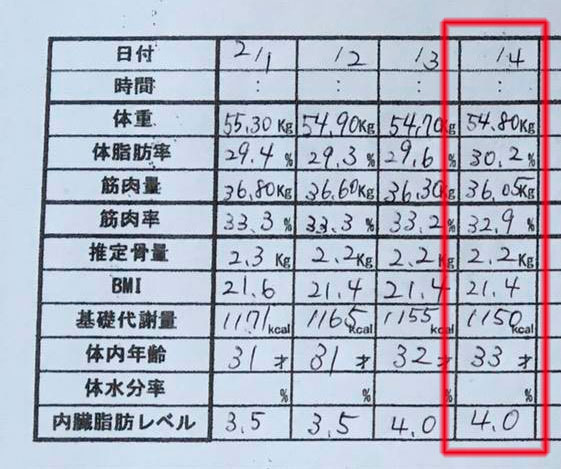 日付 2/1 /2 /3 /4
時間 : : : :
体重 55.30Kg 54.90Kg 54.70Kg 54.80Kg
体脂肪率 29.4% 29.3% 29.6% 30.2%
筋肉量 36.80Kg 36.60Kg 36.30Kg 36.05Kg
筋肉率 33.3% 33.3% 33.2% 32.9%
推定骨量 2.3Kg 2.2Kg 2.2Kg 2.2Kg
BMI 21.6 21.4 21.4 21.4
基礎代謝量 1171kcal 1165kcal 1155kcal 1150kcal
体内年齢 31才 31才 32才 33才
体水分率 % % % %
内臓脂肪レベル 3.5 3.5 4.0 4.0